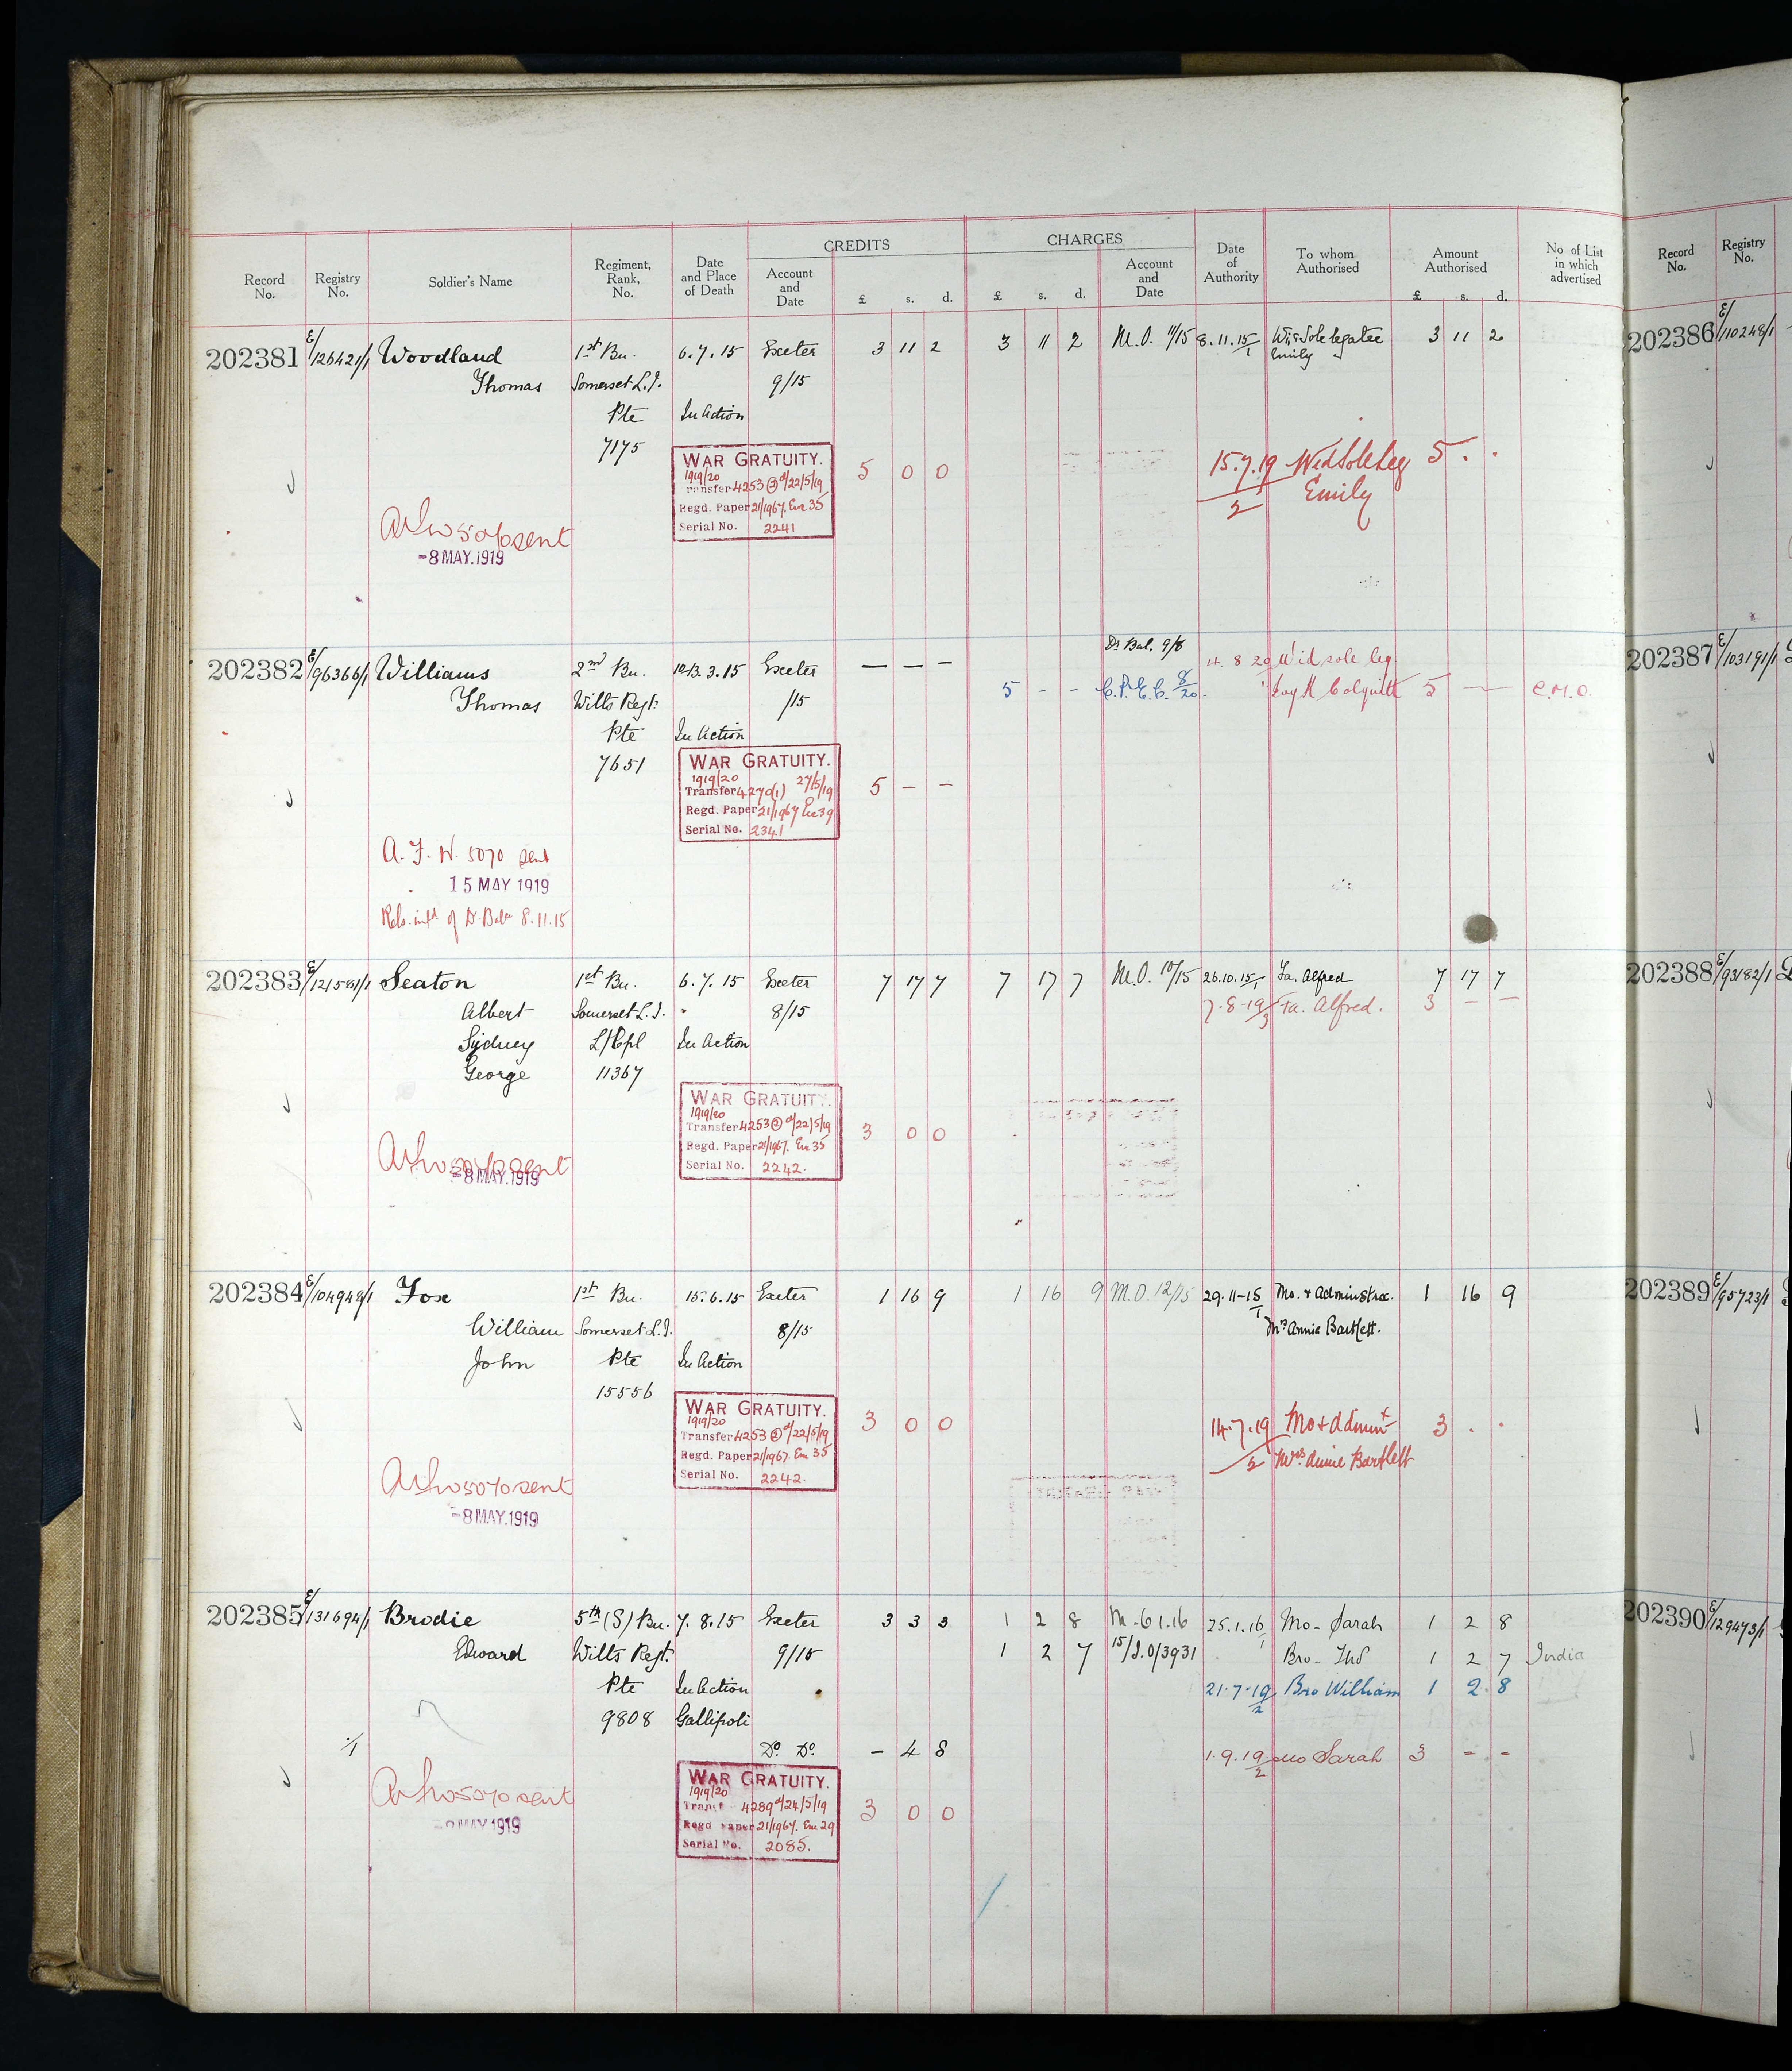 CREDITS CHARGES
Record No. Registry No. Soldier's Name Regiment, Rank, No. Date and Place of Death Account and Date £ s. d. £ s. d. Account and Date Date of Authority To whom Authorised Amount Authorised £ s. d. No of List in which advertised Record No. Registry No.
202381 E/126421/1 Woodland 1st Bn. 6.7.15 Exeter 3 11 2 3 11 2 M.O. 11/15 8.11.15/1 Wid & Sole legatee 3 11 2
Emily
Thomas Somerset L.I. 9/15
Pte In Action
7175
WAR GRATUITY.
1919/20
Transfer 4253 (2) d/22/5/19
Regd. Paper 21/1967. Exe 35
Serial No. 2241
5 0 0
15.7.19/2 Wid Sole Leg 5 . .
Emily
5070 sent
-8 MAY.1919
202382 E/96366/1 Williams 2nd Bn. 3.15 Exeter — — —
Dr Bal. 9/8
14.8.20 Wid sole leg
Thomas Wilts Regt. /15
5 - - 8/20 5 — C.M.O.
Pte In Action
7651
WAR GRATUITY.
1919/20 27/5/19
Transfer 4270(1)
Regd. Paper 21/1967 Exe 39
Serial No. 2341
5 — —
A. F. W. 5070 sent
15 MAY 1919
8.11.15
202383 E/121581/1 Seaton 1st Bn. 6.7.15 Exeter 7 17 7 7 17 7 M.O. 10/15 26.10.15/1 Fa. Alfred 7 17 7
Albert Somerset L.I. 8/15 7.8.19/3 Fa. Alfred. 3 — —
Sydney L/Cpl In Action
George 11367
WAR GRATUITY.
1919/20
Transfer 4253 (2) d/22/5/19
Regd. Paper 21/1967. Exe 35
Serial No. 2242.
3 0 0
sent
-8 MAY.1919
202384 E/104948/1 Fox 1st Bn. 15.6.15 Exeter 1 16 9 1 16 9 M.O. 12/15 29-11-15/1 Mo. & Administrx. 1 16 9
William Somerset L.I. 8/15 Mrs Annie Bartlett.
John Pte In Action
15556
WAR GRATUITY.
1919/20
Transfer 4253 (2) d/22/5/19
Regd. Paper 21/1967. Exe 35
Serial No. 2242.
3 0 0
14.7.19/2 Mo & Admintx 3 . .
Mrs. Annie Bartlett
5070 sent
-8 MAY.1919
202385 E/131694/1 Brodie 5th (S) Bn. 7.8.15 Exeter 3 3 3 1 2 8 M.O 1.16 25.1.16/1 Mo- Sarah 1 2 8
Edward Wilts Regt. 9/15 1 2 7 15/I.O/3931 Bro- Thos 1 2 7 India
Pte In Action 21.7.19/2 Bro William 1 2 8
9808 Gallipoli
Do Do. — 4 8 1.9.19/2 Mo Sarah 3 - -
WAR GRATUITY.
1919/20
4289 d/24/5/19
Regd Paper 21/1967. Exe 29
Serial No. 2085.
3 0 0
5070 sent
MAY 1919
202386 E/110248/1
202387 E/103191/1
202388 E/93182/1
202389 E/95723/1
202390 E/129473/1